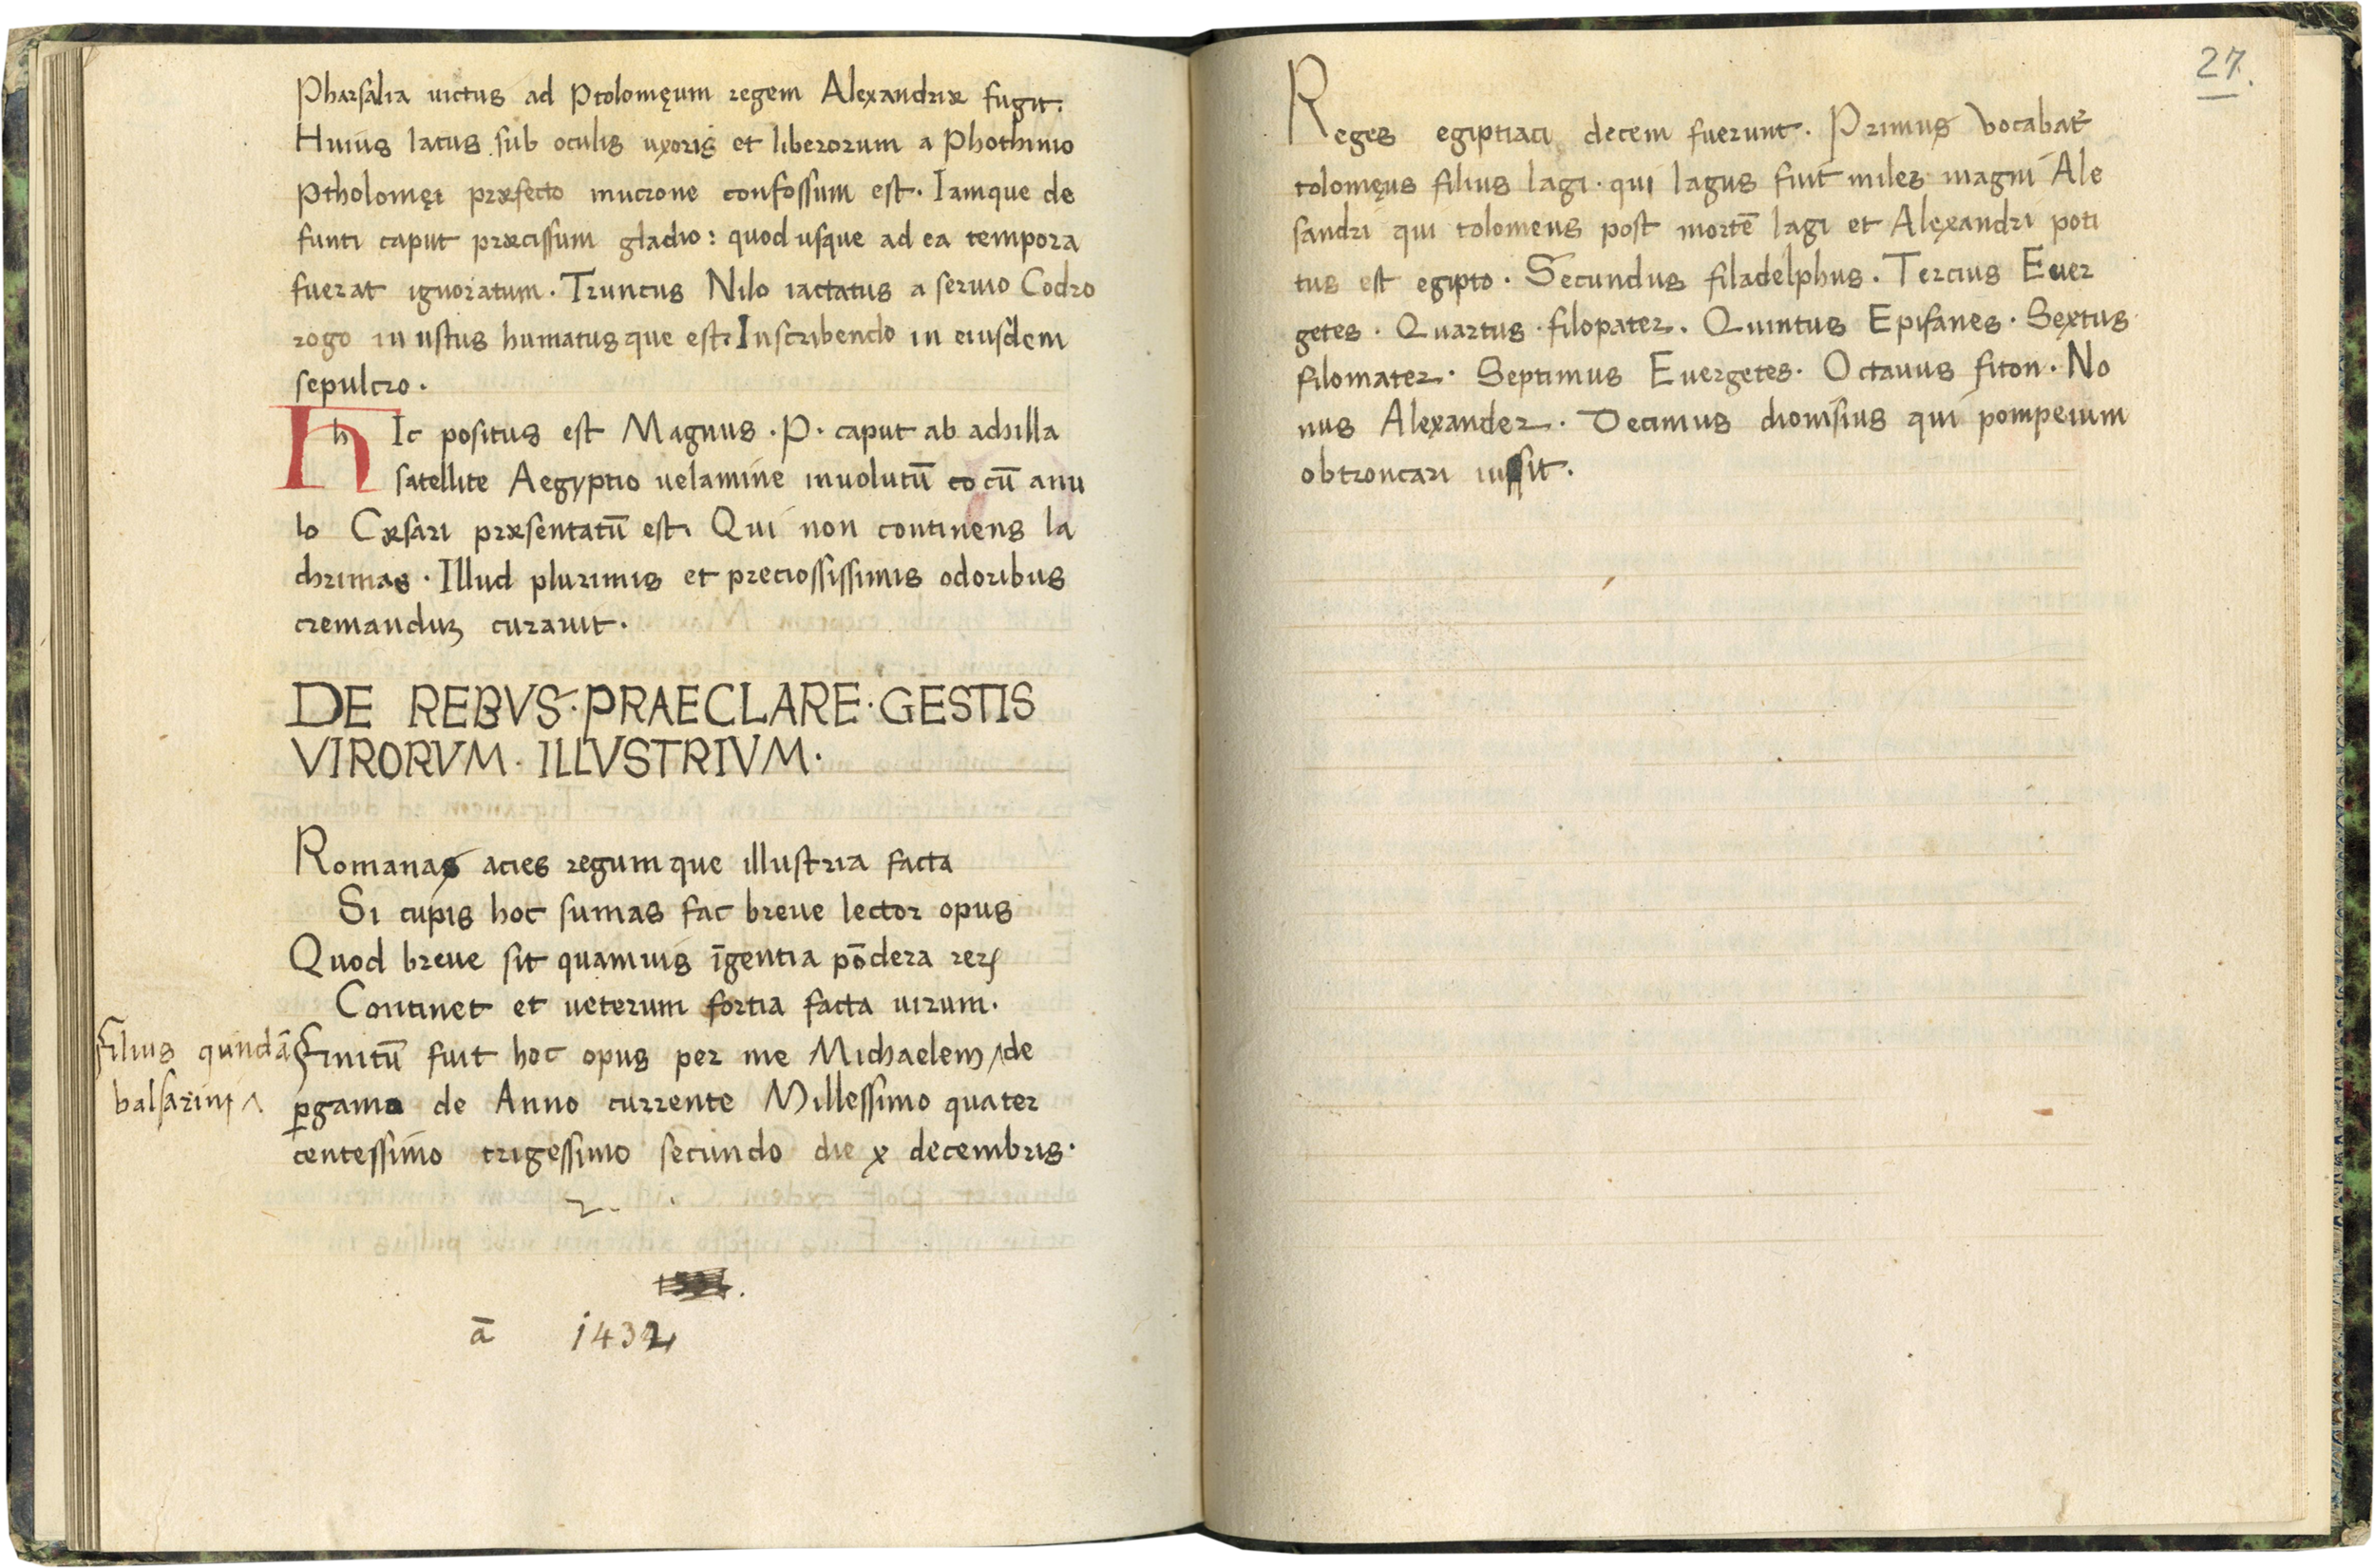 Pharsalia uictus ad Ptolomęum regem Alexandriæ fugit.
Huius latus sub oculis uxoris et liberorum a Phothinio
Ptholomęi præfecto mucrone confossum est. Iamque de
functi caput præcissum gladio: quod usque ad ea tempora
fuerat ignoratum. Truncus Nilo iactatus a seruio Codro
rogo in ustus humatusque est. Inscribendo in eiusdem
sepulcro.
h Ic positus est Magnus .P. caput ab achilla
satellite Aegyptio uelamine inuolutū cū anu
lo Cæsari præsentatū est. Qui non continens la
chrimas. Illud plurimis et preciossissimis odoribus
cremanduʒ curauit.
DE REBVS·PRAECLARE·GESTIS
VIRORVM·ILLVSTRIVM·
Romanas acies regumque illustria facta
Si cupis hoc sumas fac breue lector opus
Quod breue sit quamuis īgentia pōdera rerꝝ
Continet et ueterum fortia facta uirum.
Finitū fuit hoc opus per me Michaelem ^ de
filius qundā
balsarini ^
ꝑgamo de Anno currente Millessimo quater
centessimo trigessimo secundo die x decembris.
2.
ā 1432
27.
Reges egiptiaci decem fuerunt. Primus vocabat᷑
tolomęus filius lagi. qui lagus fuit miles magni Ale
sandri qui tolomeus post mortē lagi et Alexandri poti
tus est egipto. Secundus filadelphus. Tercius Euer
getes. Quartus filopater. Quintus Epifanes. Sextus
filomater. Septimus Euergetes. Octauus fiton. No
nus Alexander. Decimus dionisius qui pompeium
obtroncari iussit.